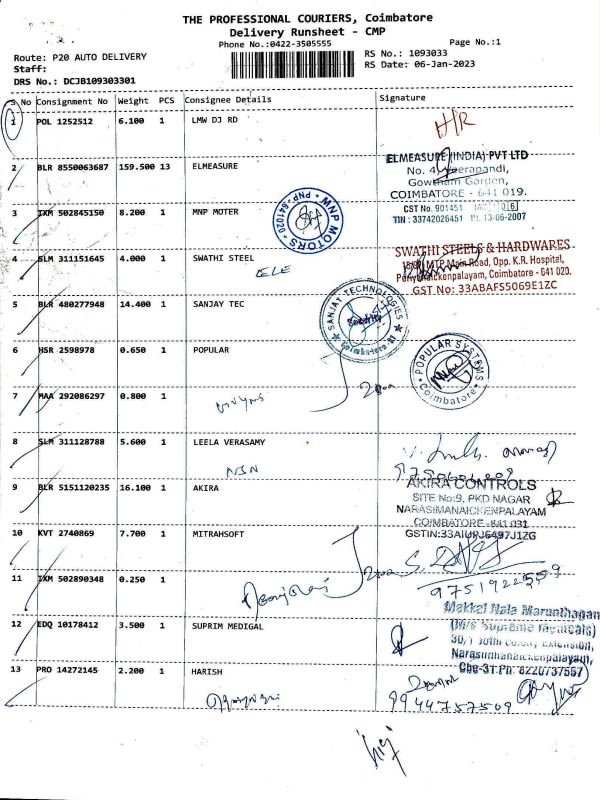 THE PROFESSIONAL COURIERS, Coimbatore
Delivery Runsheet - CMP
Phone No.:0422-3505555
Page No.:1
Route: P20 AUTO DELIVERY
RS No.: 1093033
Staff:
RS Date: 06-Jan-2023
DRS No.: DCJB109303301
S No Consignment No Weight PCS Consignee Details Signature
1 POL 1252512 6.100 1 LMW DJ RD
H/R
2 BLR 8550063687 159.500 13 ELMEASURE
ELMEASURE (INDIA) PVT LTD
No. 4, Veerapandi,
Gowtham Garden,
COIMBATORE - 641 019.
CST No. 901451
TIN : 33742026451 P. 13-06-2007
3 IXM 502845150 8.200 1 MNP MOTER
MNP MOTORS
PNP - 641020
4 SLM 311151645 4.000 1 SWATHI STEEL
ELE
SWATHI STEELS & HARDWARES
MTP Main Road, Opp. K.R. Hospital,
Periyanaickenpalayam, Coimbatore - 641 020.
GST No: 33ABAFS5069E1ZC
5 BLR 480277948 14.400 1 SANJAY TEC
SANJAY TECHNOLOGIES
Coimbatore
6 HSR 2598978 0.650 1 POPULAR
POPULAR SYSTEMS
Coimbatore
7 MAA 292086297 0.800 1
8 SLM 311128788 5.600 1 LEELA VERASAMY
NJN
9 BLR 5151120235 16.100 1 AKIRA
AKIRA CONTROLS
SITE No:9, PKD NAGAR
NARASIMANAICKENPALAYAM
COIMBATORE -641 031
GSTIN:33AIUPJ6497J1ZG
10 KVT 2740869 7.700 1 MITRAHSOFT
11 IXM 502890348 0.250 1
12 EDQ 10178412 3.500 1 SUPRIM MEDIGAL
Makkal Nala Marunthagam
Narasimhanaickenpalayam,
Cbe-31.Ph: 8220737557
13 PRO 14272145 2.200 1 HARISH
9944757509